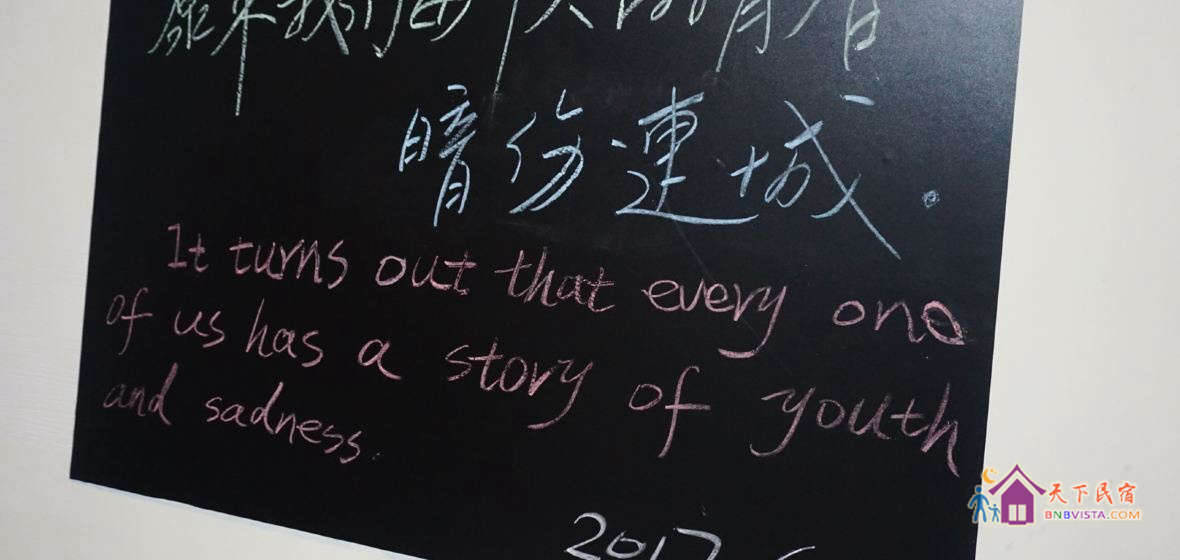 原来我们每个人的青春
暗伤連城.
It turns out that every one
of us has a story of youth
and sadness.
2017
天下民宿
BNBVISTA.COM